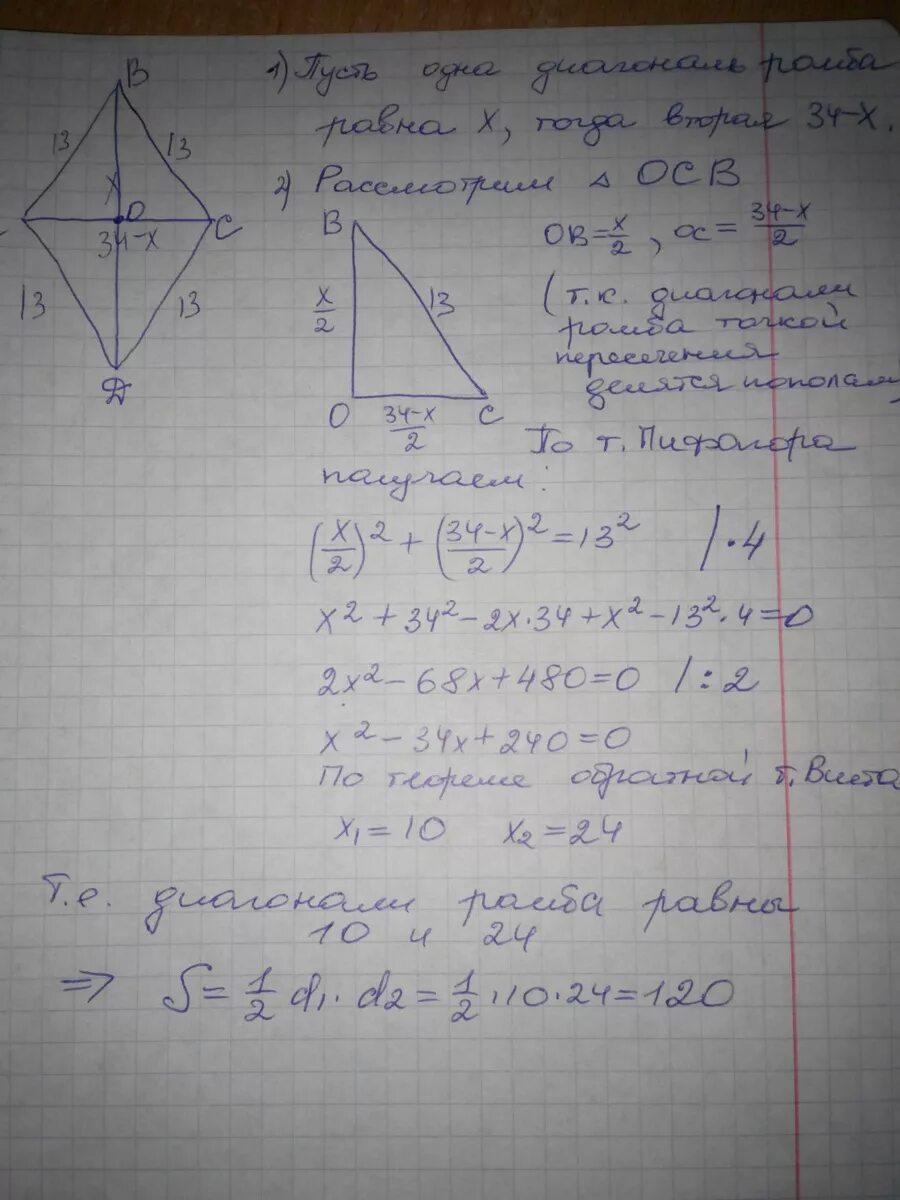 B
13
13
x
O
C
34-x
13
13
Д
1) Пусть одна диагональ ромба
равна x, тогда вторая 34-x.
2) Рассмотрим △ OCB
B
x/2
13
O
(34-x)/2
C
OB = x/2, OC = (34-x)/2
(т.к. диагонали
ромба точкой
пересечения
делятся пополам
По т. Пифагора
получаем:
(x/2)² + ((34-x)/2)² = 13² | · 4
x² + 34² - 2x·34 + x² - 13²·4 = 0
2x² - 68x + 480 = 0 | : 2
x² - 34x + 240 = 0
По теореме обратной т. Виета
x₁ = 10 x₂ = 24
Т.е. диагонали ромба равны
10 и 24
⇒ S = 1/2 d₁ · d₂ = 1/2 · 10 · 24 = 120